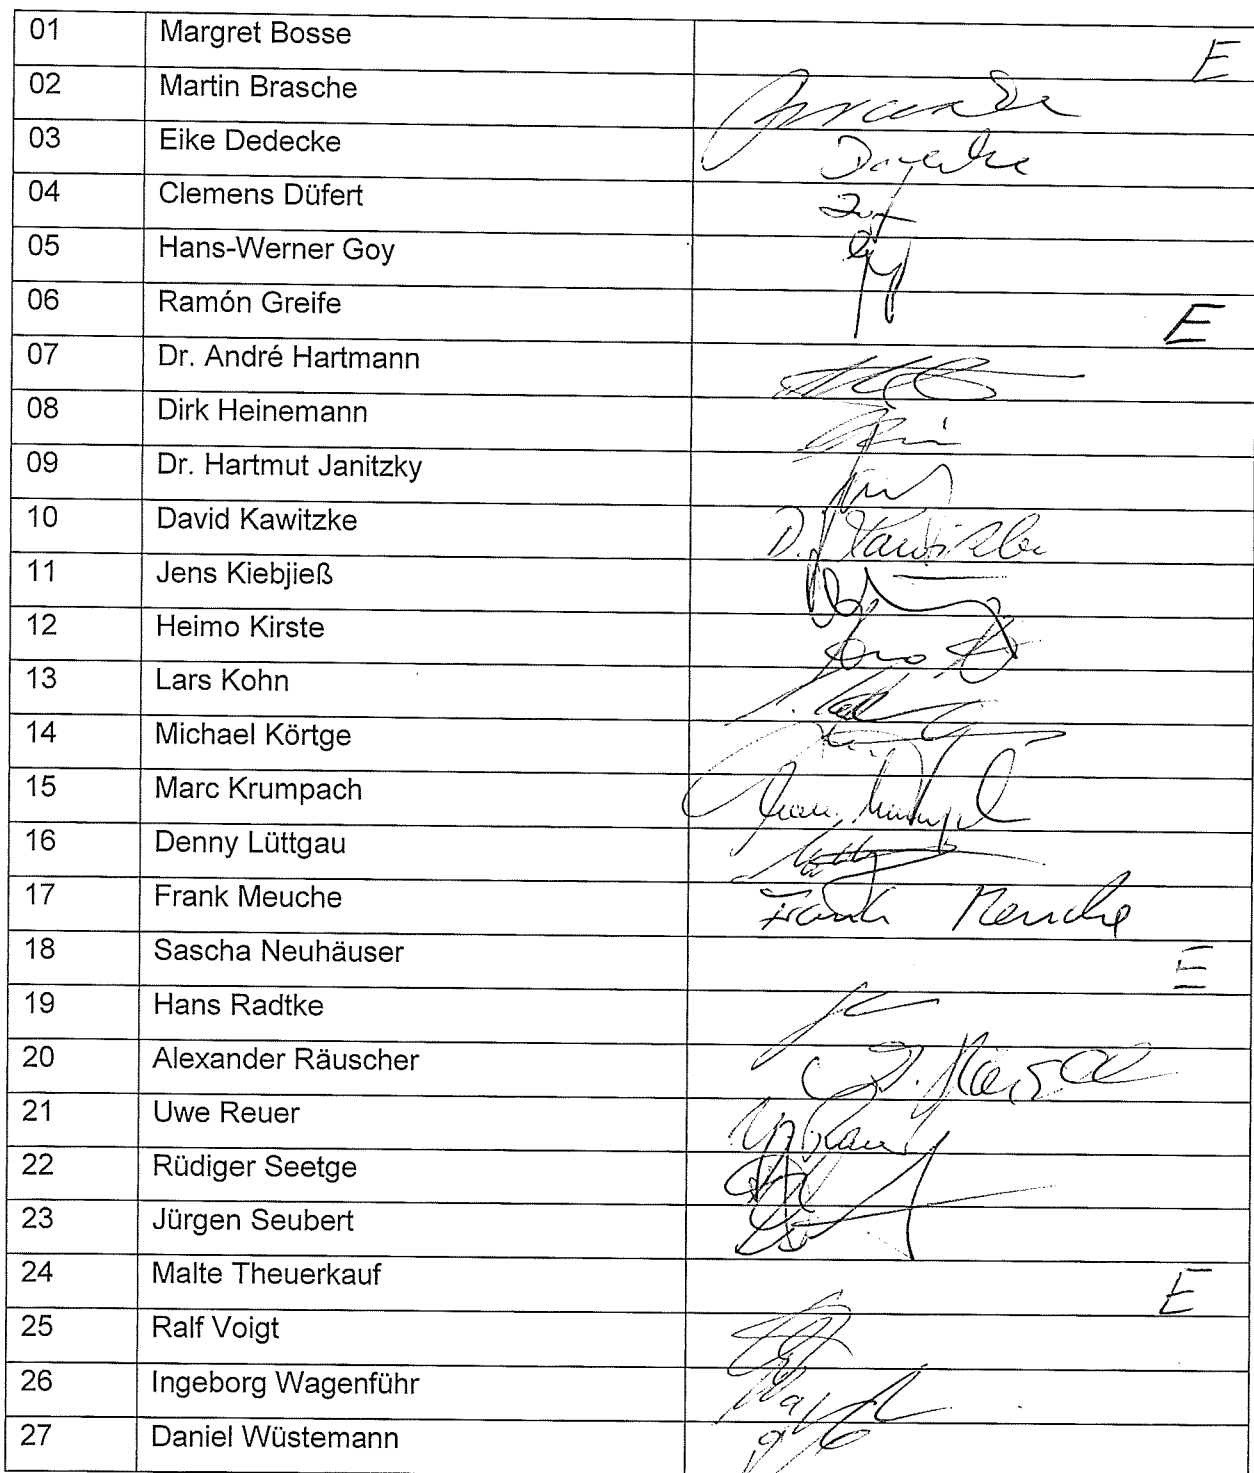 01 Margret Bosse E
02 Martin Brasche
03 Eike Dedecke
04 Clemens Düfert
05 Hans-Werner Goy
06 Ramón Greife E
07 Dr. André Hartmann
08 Dirk Heinemann
09 Dr. Hartmut Janitzky
10 David Kawitzke D. Kawitzke
11 Jens Kiebjieß
12 Heimo Kirste
13 Lars Kohn
14 Michael Körtge
15 Marc Krumpach
16 Denny Lüttgau
17 Frank Meuche Frank Meuche
18 Sascha Neuhäuser E
19 Hans Radtke
20 Alexander Räuscher
21 Uwe Reuer
22 Rüdiger Seetge
23 Jürgen Seubert
24 Malte Theuerkauf E
25 Ralf Voigt
26 Ingeborg Wagenführ
27 Daniel Wüstemann